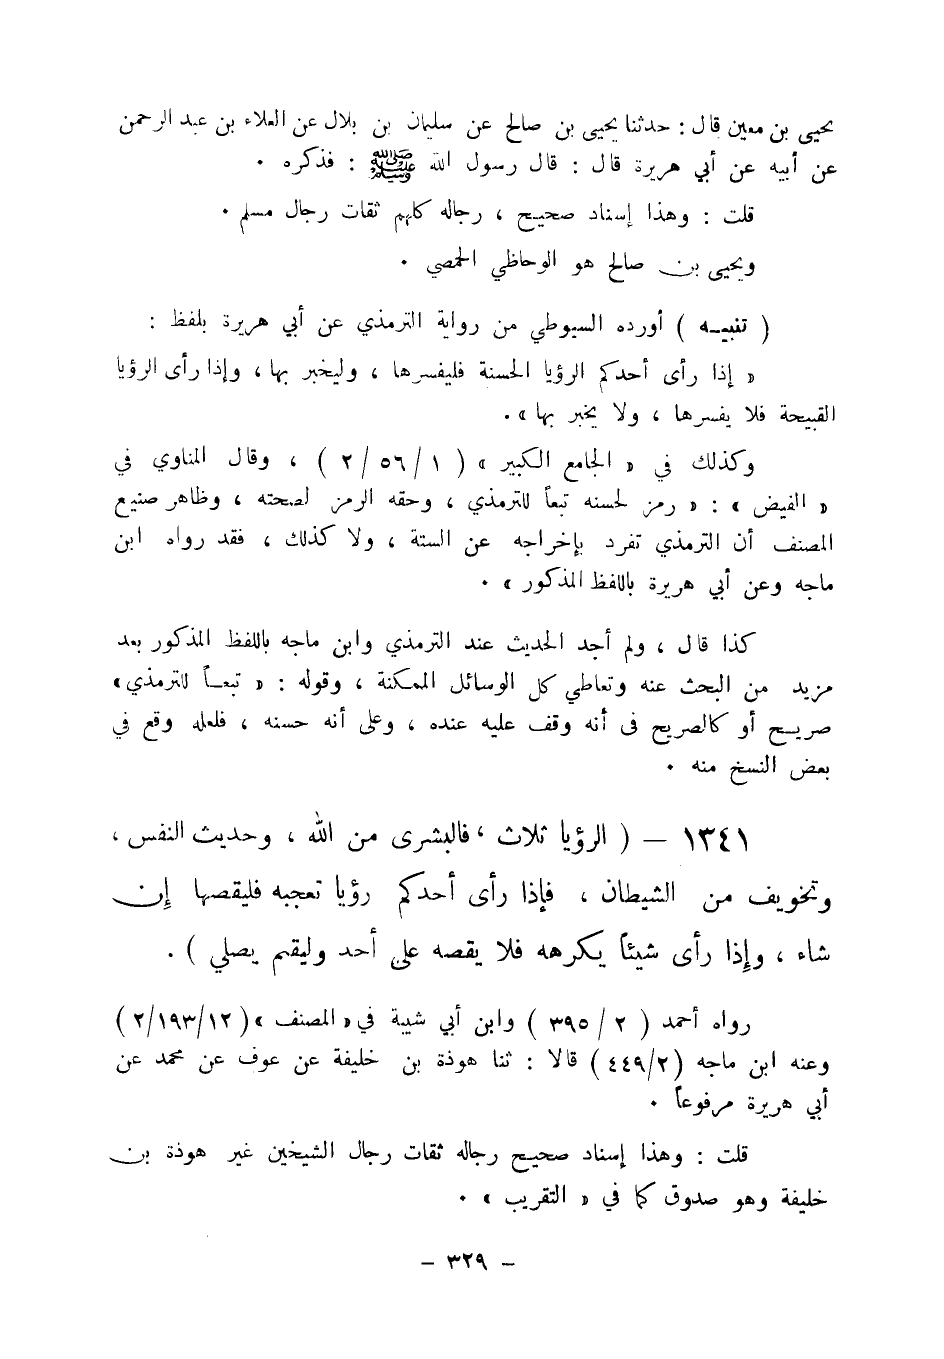 يحيى بن معين قال : حدثنا يحيى بن صالح عن سليمان بن بلال عن العلاء بن عبد الرحمن
عن أبيه عن أبي هريرة قال : قال رسول الله ﷺ : فذكره .
قلت : وهذا إسناد صحيح ، رجاله كلهم ثقات رجال مسلم .
ويحيى بن صالح هو الوحاظي الحمصي .
( تنبيه ) أورده السيوطي من رواية الترمذي عن أبي هريرة بلفظ :
« إذا رأى أحدكم الرؤيا الحسنة فليفسرها ، وليخبر بها ، وإذا رأى الرؤيا
القبيحة فلا يفسرها ، ولا يخبر بها » .
وكذلك في « الجامع الكبير » ( ١ / ٥٦ / ٢ ) ، وقال المناوي في
« الفيض » : « رمز لحسنه تبعاً للترمذي ، وحقه الرمز لصحته ، وظاهر صنيع
المصنف أن الترمذي تفرد بإخراجه عن الستة ، ولا كذلك ، فقد رواه ابن
ماجه وعن أبي هريرة باللفظ المذكور » .
كذا قال ، ولم أجد الحديث عند الترمذي وابن ماجه باللفظ المذكور بعد
مزيد من البحث عنه وتعاطي كل الوسائل الممكنة ، وقوله : « تبعـاً للترمذي »
صريح أو كالصريح فى أنه وقف عليه عنده ، وعلى أنه حسنه ، فلعله وقع في
بعض النسخ منه .
١٣٤١ – ( الرؤيا ثلاث ، فالبشرى من الله ، وحديث النفس ،
وتخويف من الشيطان ، فإذا رأى أحدكم رؤيا تعجبه فليقصها إن
شاء ، وإذا رأى شيئاً يكرهه فلا يقصه على أحد وليقم يصلي ) .
رواه أحمد ( ٢ / ٣٩٥ ) وابن أبي شيبة في « المصنف » ( ١٢/١٩٣/٢ )
وعنه ابن ماجه ( ٢/٤٤٩ ) قالا : ثنا هوذة بن خليفة عن عوف عن محمد عن
أبي هريرة مرفوعاً .
قلت : وهذا إسناد صحيح رجاله ثقات رجال الشيخين غير هوذة بن
خليفة وهو صدوق كما في « التقريب » .
- ٣٢٩ -